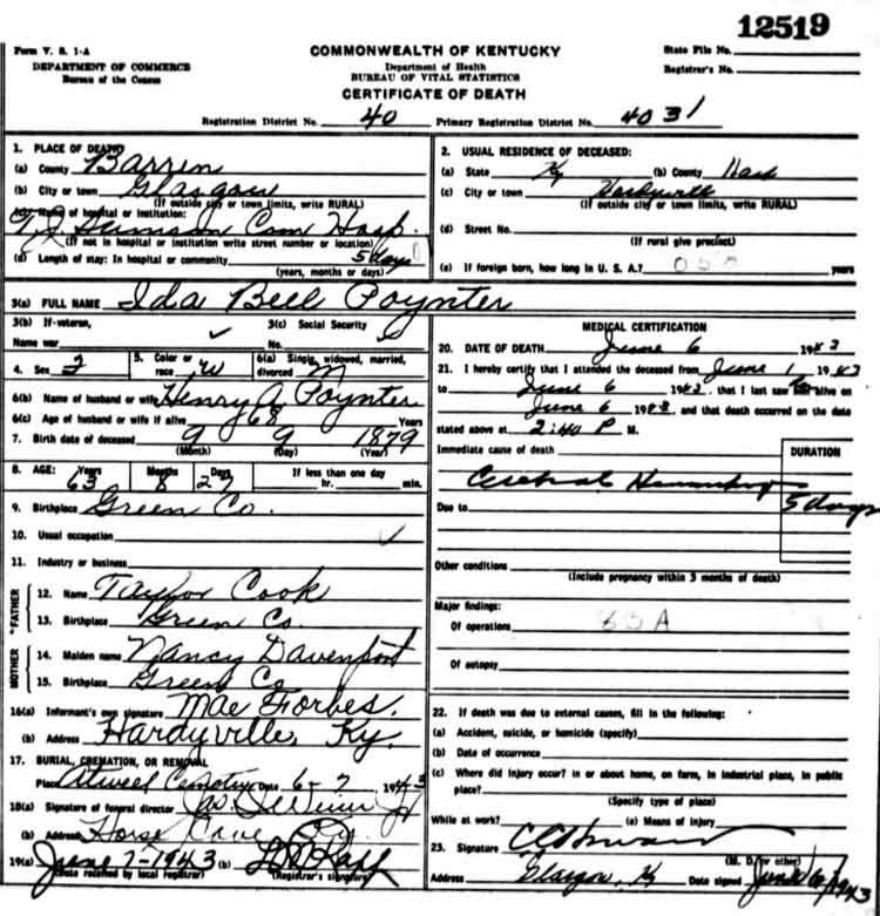 12519
Form V. S. 1-A
DEPARTMENT OF COMMERCE
Bureau of the Census
COMMONWEALTH OF KENTUCKY
Department of Health
BUREAU OF VITAL STATISTICS
CERTIFICATE OF DEATH
State File No.
Registrar's No.
Registration District No. 40 Primary Registration District No. 4031
1. PLACE OF DEATH
(a) County Barren
(b) City or town Glasgow
(If outside city or town limits, write RURAL)
(c) Name of hospital or institution:
T. J. Samson Com Hosp.
(If not in hospital or institution write street number or location)
(d) Length of stay: In hospital or community 5 days
(years, months or days)
2. USUAL RESIDENCE OF DECEASED:
(a) State Ky (b) County Hart
(c) City or town Hardyville
(If outside city or town limits, write RURAL)
(d) Street No.
(If rural give precinct)
(e) If foreign born, how long in U. S. A.? years
3(a) FULL NAME Ida Bell Poynter
3(b) If veteran,
Name war
3(c) Social Security
No.
4. Sex F 5. Color or race W 6(a) Single, widowed, married, divorced M
6(b) Name of husband or wife Henry A Poynter
6(c) Age of husband or wife if alive 68 Years
7. Birth date of deceased 9 9 1879
(Month) (Day) (Year)
8. AGE: Years 63 Months 8 Days 27 If less than one day hr. min.
9. Birthplace Green Co.
10. Usual occupation
11. Industry or business
FATHER
12. Name Taylor Cook
13. Birthplace Green Co.
MOTHER
14. Maiden name Nancy Davenport
15. Birthplace Green Co
16(a) Informant's own signature Mae Forbes.
(b) Address Hardyville, Ky.
17. BURIAL, CREMATION, OR REMOVAL
Place Atwell Cemetery Date 6-7 1943
18(a) Signature of funeral director
(b) Address Horse Cave Ky.
19(a) June 7-1943 (b)
(Date received by local registrar) (Registrar's signature)
MEDICAL CERTIFICATION
20. DATE OF DEATH June 6 1943
21. I hereby certify that I attended the deceased from June 1 1943
to June 6 1943, that I last saw her alive on
June 6 1943 and that death occurred on the date
stated above at 2:40 P M.
Immediate cause of death DURATION
Cerebral Hemorrhage
Due to 5 days
Other conditions
(Include pregnancy within 3 months of death)
Major findings:
Of operations 83A
Of autopsy
22. If death was due to external causes, fill in the following:
(a) Accident, suicide, or homicide (specify)
(b) Date of occurrence
(c) Where did injury occur? in or about home, on farm, in industrial place, in public
place?
(Specify type of place)
While at work? (e) Means of injury
23. Signature
(M. D. or other)
Address Glasgow, Ky Date signed June 6/1943